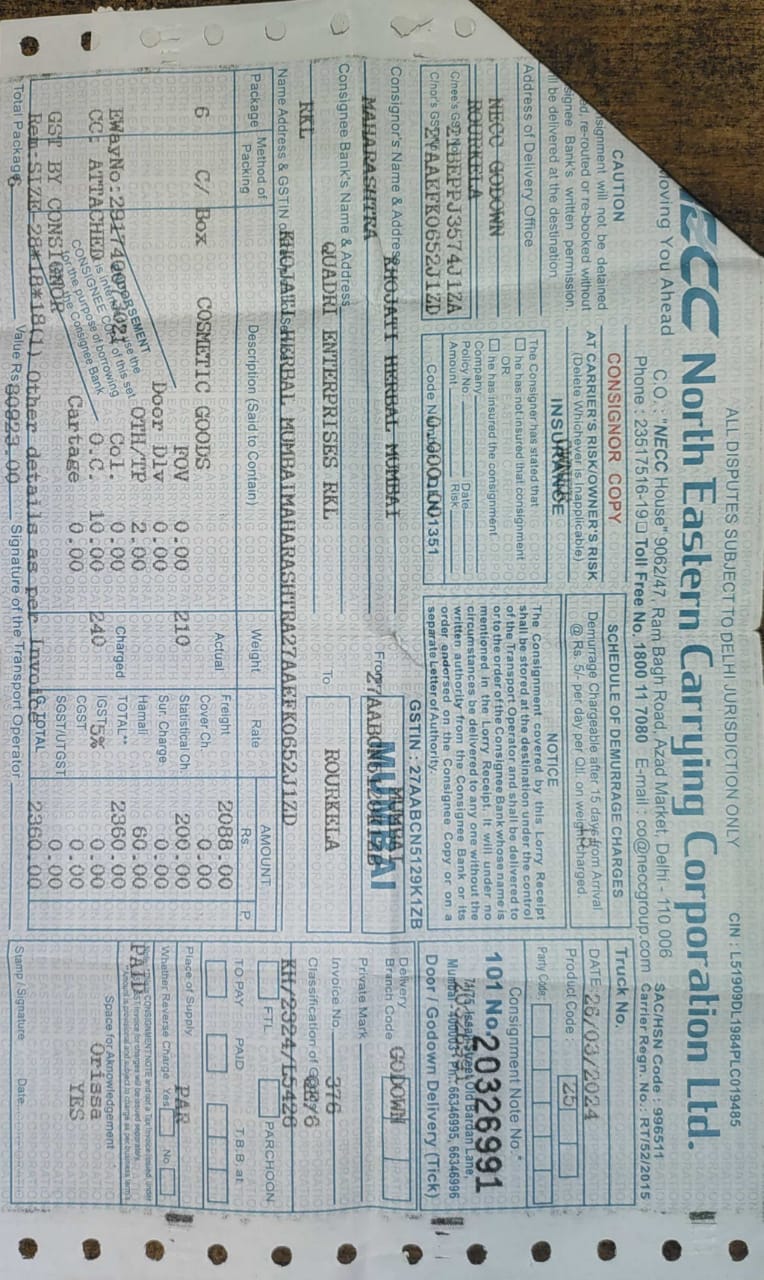 ALL DISPUTES SUBJECT TO DELHI JURISDICTION ONLY
CIN : L51909DL1984PLC019485
NECC North Eastern Carrying Corporation Ltd.
Moving You Ahead
C.O. : "NECC House" 9062/47, Ram Bagh Road, Azad Market, Delhi - 110 006
SAC/HSN Code : 996511
Phone : 23517516-19 Toll Free No. 1800 11 7080 E-mail : co@neccgroup.com
Carrier Regn. No.: RT/52/2015
CAUTION
signment will not be detained
ed, re-routed or re-booked without
signee Bank's written permission
ill be delivered at the destination
CONSIGNOR COPY
AT CARRIER'S RISK/OWNER'S RISK
(Delete Whichever is Inapplicable)
INSURANCE
OWNER
SCHEDULE OF DEMURRAGE CHARGES
Demurrage Chargeable after 15 days from Arrival
@ Rs. 5/- per day per Qtl. on weight charged.
Truck No.
DATE 26/03/2024
Product Code : 25
Party Code :
Address of Delivery Office
NECC GODOWN
ROURKELA
C/nee's GST 21BEPPJ3574J1ZA
C/nor's GST 27AAEFK0652J1ZD
The Consigner has stated that
he has not insured that consignment
OR
he has insured the consignment
Company
Policy No. Date
Amount Risk
NOTICE
The Consignment covered by this Lorry Receipt
shall be stored at the destination under the control
of the Transport Operator and shall be delivered to
or to the order of the Consignee Bank whose name is
mentioned in the Lorry Receipt. It will under no
circumstances be delivered to any one without the
written authority from the Consignee Bank or its
order endorsed on the Consignee Copy or on a
separate Letter of Authority.
Consignment Note No.*
101 No. 20326991
Old Bardan Lane,
Mumbai - 400003 Ph.: 66346995, 66346996
Door / Godown Delivery (Tick)
Code No. 0000001351
GSTIN : 27AABCN5129K1ZB
Consignor's Name & Address KHOJATI HERBAL MUMBAI
MAHARASHTRA
From
MUMBAI
MUMBAI
Delivery
Branch Code GODOWN
Private Mark
Consignee Bank's Name & Address
QUADRI ENTERPRISES RKL
RKL
To ROURKELA
Invoice No. 376
Classification of
Name Address & GSTIN KHOJATI HERBAL MUMBAIMAHARASHTRA27AAEFK0652J1ZD
KH/2324/L5426
Package
Method of
Packing
Description (Said to Contain)
Weight
Rate
AMOUNT
Rs. P.
FTL PARCHOON
TO PAY PAID T.B.B at
6 C/ Box COSMETIC GOODS
Actual
210
Charged
240
FOV 0.00
Door Dlv 0.00
OTH/TP 2.00
Col. 0.00
O.C. 10.00
Cartage 0.00
Freight 2088.00
Cover Ch. 0.00
Statistical Ch. 200.00
Sur. Charge 0.00
Hamali 60.00
TOTAL** 2360.00
GST 5% 0.00
CGST 0.00
SGST/UTGST 0.00
G. TOTAL 2360.00
CC: ATTACHED
GST BY CONSIGNOR
ENDORSEMENT
CONSIGNEE
for the purpose of borrowing
Rem:SIZE-28*18*18(1) Other details as per Invoice
Total Package 6
Value Rs. 60923.00
Signature of the Transport Operator
Place of Supply PAR
Whether Reverse Charge Yes No
PAID
Space for Aknowledgement
Orissa
YES
Stamp / Signature
Date